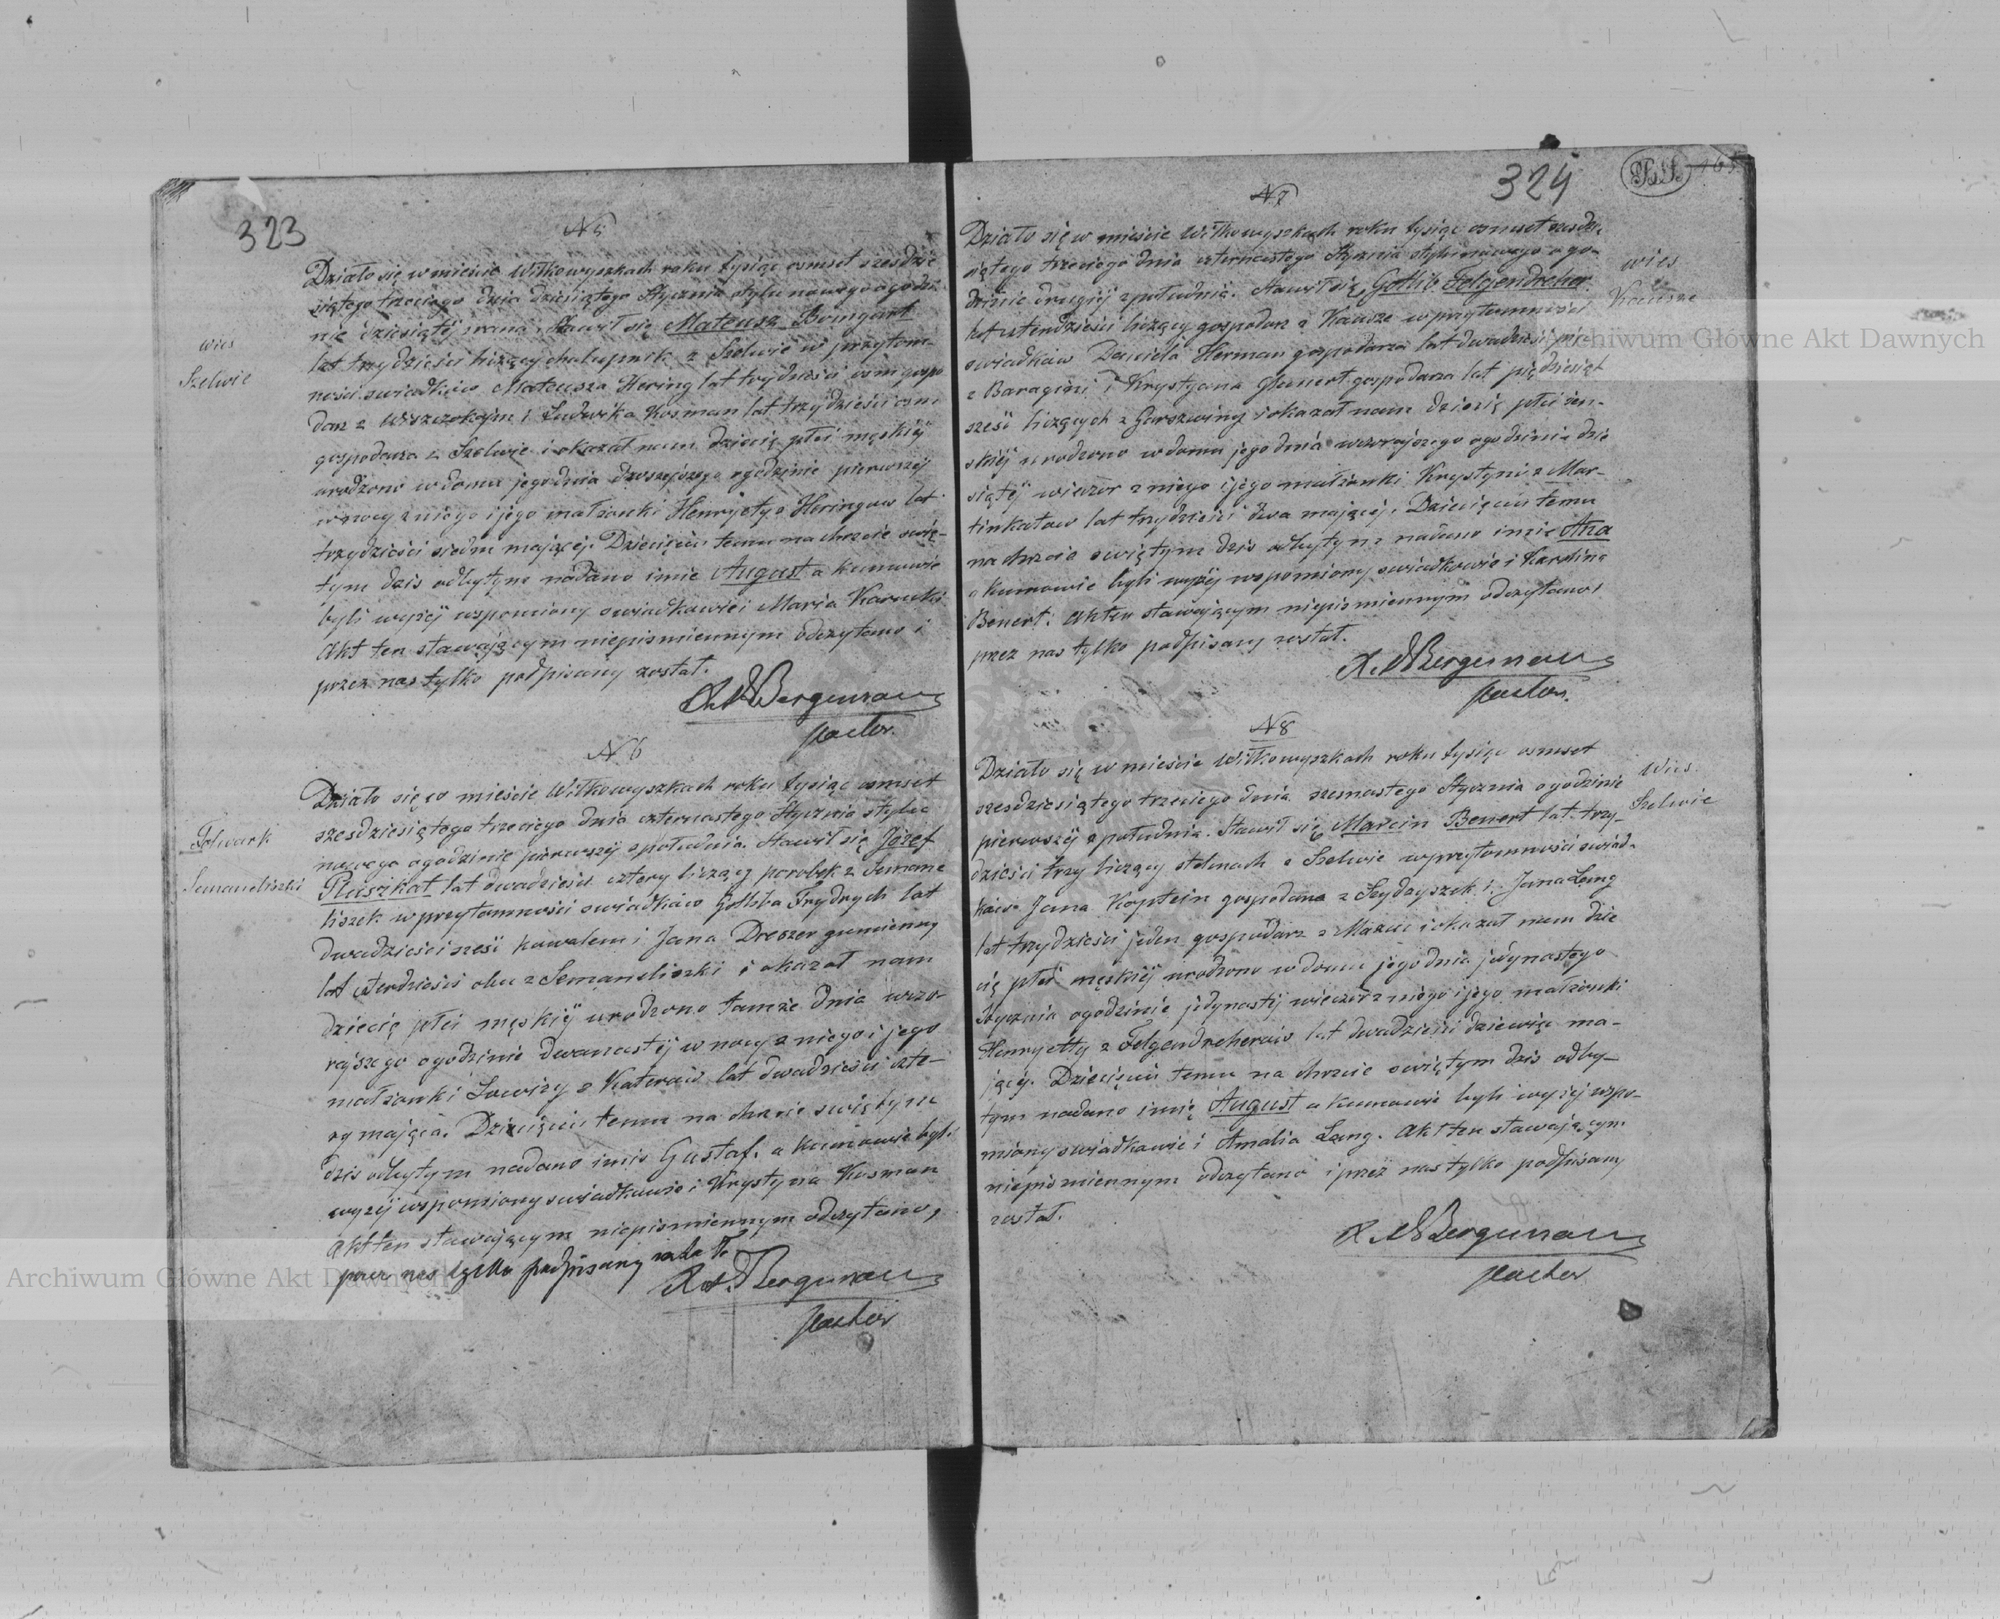 323
N 5
wieś
Szelwie
Działo się w mieście Wiłkowyszkach roku tysiąc osmset szesdzie
siątego trzeciego dnia dziesiątego Stycznia stylu nowego o godzi
nie dziesiątej zrana. Stawił się Mateusz Baumgart
lat trzydzieści liczący chałupnik z Szelwie w przytom-
ności świadków Mateusza Hering lat trzydzieści osm gospo
darz z i Ludwika Kosman lat trzydzieści osm
gospodarza z Szelwie i okazał nam dziecię płci męskiej
urodzone w domu jego dnia dzisiejszego o godzinie pierwszej
w nocy z niego i jego małżonki Henryety z Heringow lat
trzydzieści siedm mającej. Dziecięciu temu na chrzcie swię-
tym dzis odbytym nadano imie August a kumowie
byli wyżej wspomiony swiadkowie i Maria
Akt ten stawającym niepismiennym odczytano i
przez nas tylko podpisany został.
Bergmann
Pastor.
N 6
Folwark
Semaneliszki
Działo się w mieście Wiłkowyszkach roku tysiąc osmset
szesdziesiątego trzeciego dnia czternastego Stycznia stylu
nowego o godzinie pierwszej z południa. Stawił się Józef
Pluszkat lat dwadzieścia cztery liczący parobek z Semane
liszek w przytomności swiadków Gotliba Frydrych lat
dwadzieścia szesć kowalem i Jana Dreszer gumienny
lat czterdzieści obu z Semaneliszki i okazał nam
dziecię płci męskiej urodzono tamże dnia wczo-
rajszego o godzinie dwanastej w nocy z niego i jego
małżonki Lowizy z lat dwadzieścia czte-
ry mająca. Dziecięciu temu na chrzcie swiętym
dzis odbytym nadano imie Gustaf. a kumowie byli
wyżej wspomiony swiadkowie i Krystyna Kosman
Akt ten stawającym niepismiennym odczytano,
przez nas tylko podpisany został.
Bergmann
Pastor
324
N 7
wieś
Kausze
Działo się w mieście Wiłkowyszkach roku tysiąc osmset szesdzie
siątego trzeciego dnia czternastego Stycznia stylu nowego o go-
dzinie drugiej z południa. Stawił się Gotlib Felgendreher
lat czterdzieści liczący gospodarz z Kausze w przytomności
swiadków Daniela Herman gospodarza lat dwadzieścia
z Baragini i Krystyana Grunert gospodarza lat pięćdziesiąt
szesć liczących z i okazał nam dziecię płci żen-
skiej urodzono w domu jego dnia wczorajszego o godzinie dzie
siątej wieczor z niego i jego małżonki Krystyni z Mar-
tinkatow lat trzydzieści dwa mającej. Dziecięciu temu
na chrzcie swiętym dzis odbytym nadano imie Ana
a kumowie byli wyżej wspomiony swiadkowie i Karolina
Benert. Akt ten stawającym niepismiennym odczytano i
przez nas tylko podpisany został.
Bergmann
Pastor.
N 8
Wieś
Szelwie
Działo się w mieście Wiłkowyszkach roku tysiąc osmset
szesdziesiątego trzeciego dnia szesnastego Stycznia o godzinie
pierwszej z południa. Stawił się Marcin Benert lat trzy-
dzieści trzy liczący stelmach z Szelwie w przytomności swiad-
ków Jana Kaptein gospodarza z i Jana Lang
lat trzydzieści jeden gospodarz z i okazał nam dzie
cię płci męskiej urodzono w domu jego dnia jedynastego
Stycznia o godzinie jedynastej wieczor z niego i jego małżonki
Henryetty z Felgendreherow lat dwadzieścia dziewięć ma-
jącej. Dziecięciu temu na chrzcie swiętym dzis odby-
tym nadano imię August a kumowie byli wyżej wspo-
miony swiadkowie i Amalia Lang. Akt ten stawającym
niepismiennym odczytano i przez nas tylko podpisany
został.
Bergmann
Pastor
Archiwum Główne Akt Dawnych
Archiwum Główne Akt Dawnych